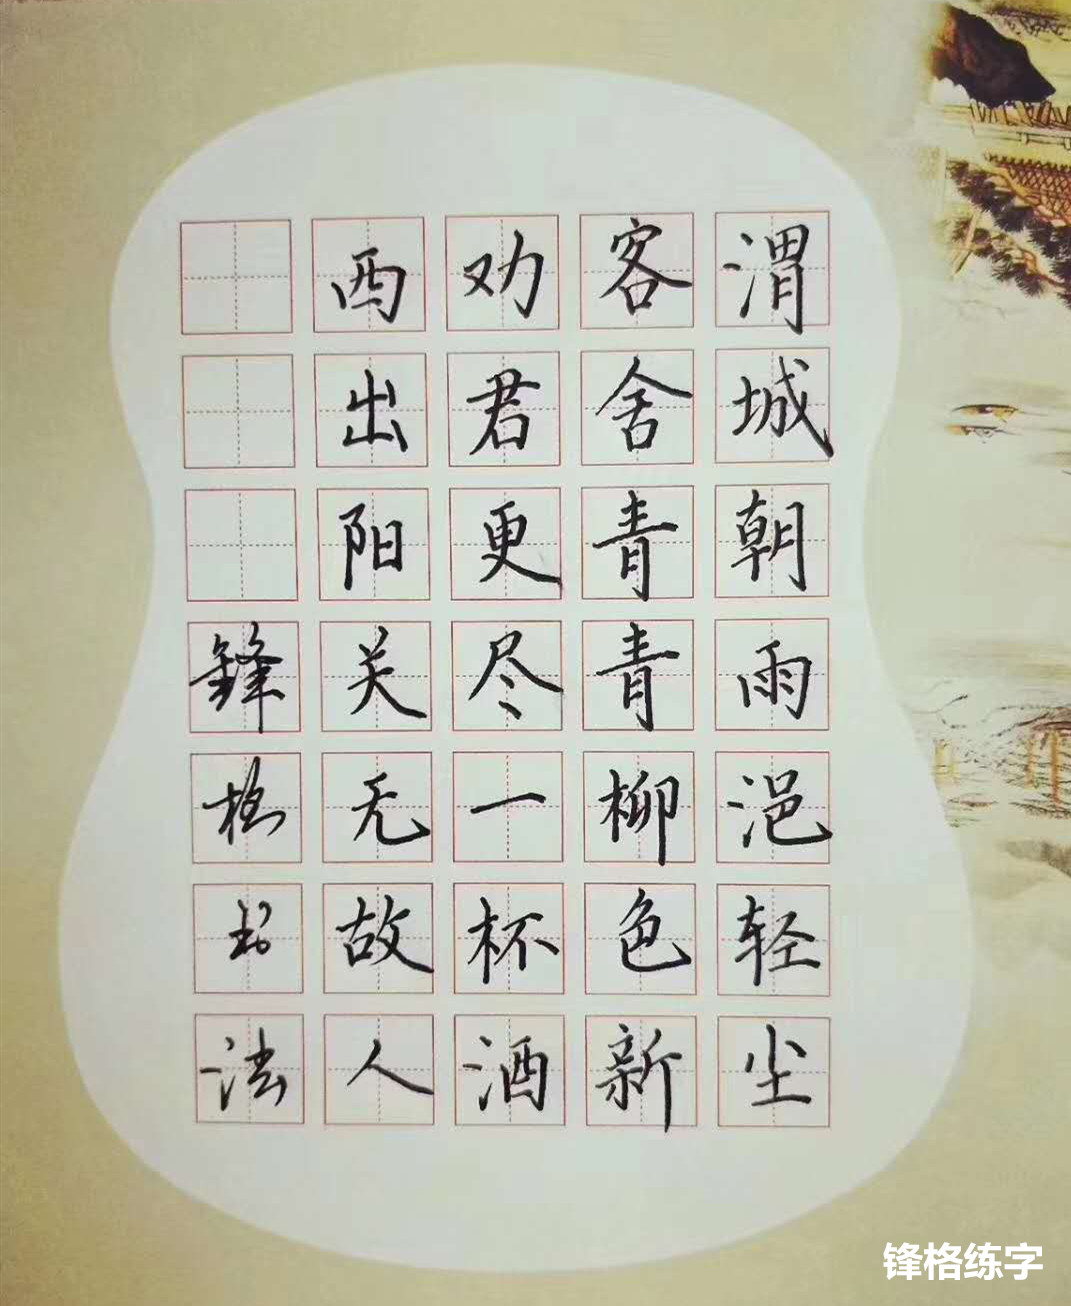 渭城朝雨浥轻尘
客舍青青柳色新
劝君更尽一杯酒
西出阳关无故人
鋒格书法
锋格练字